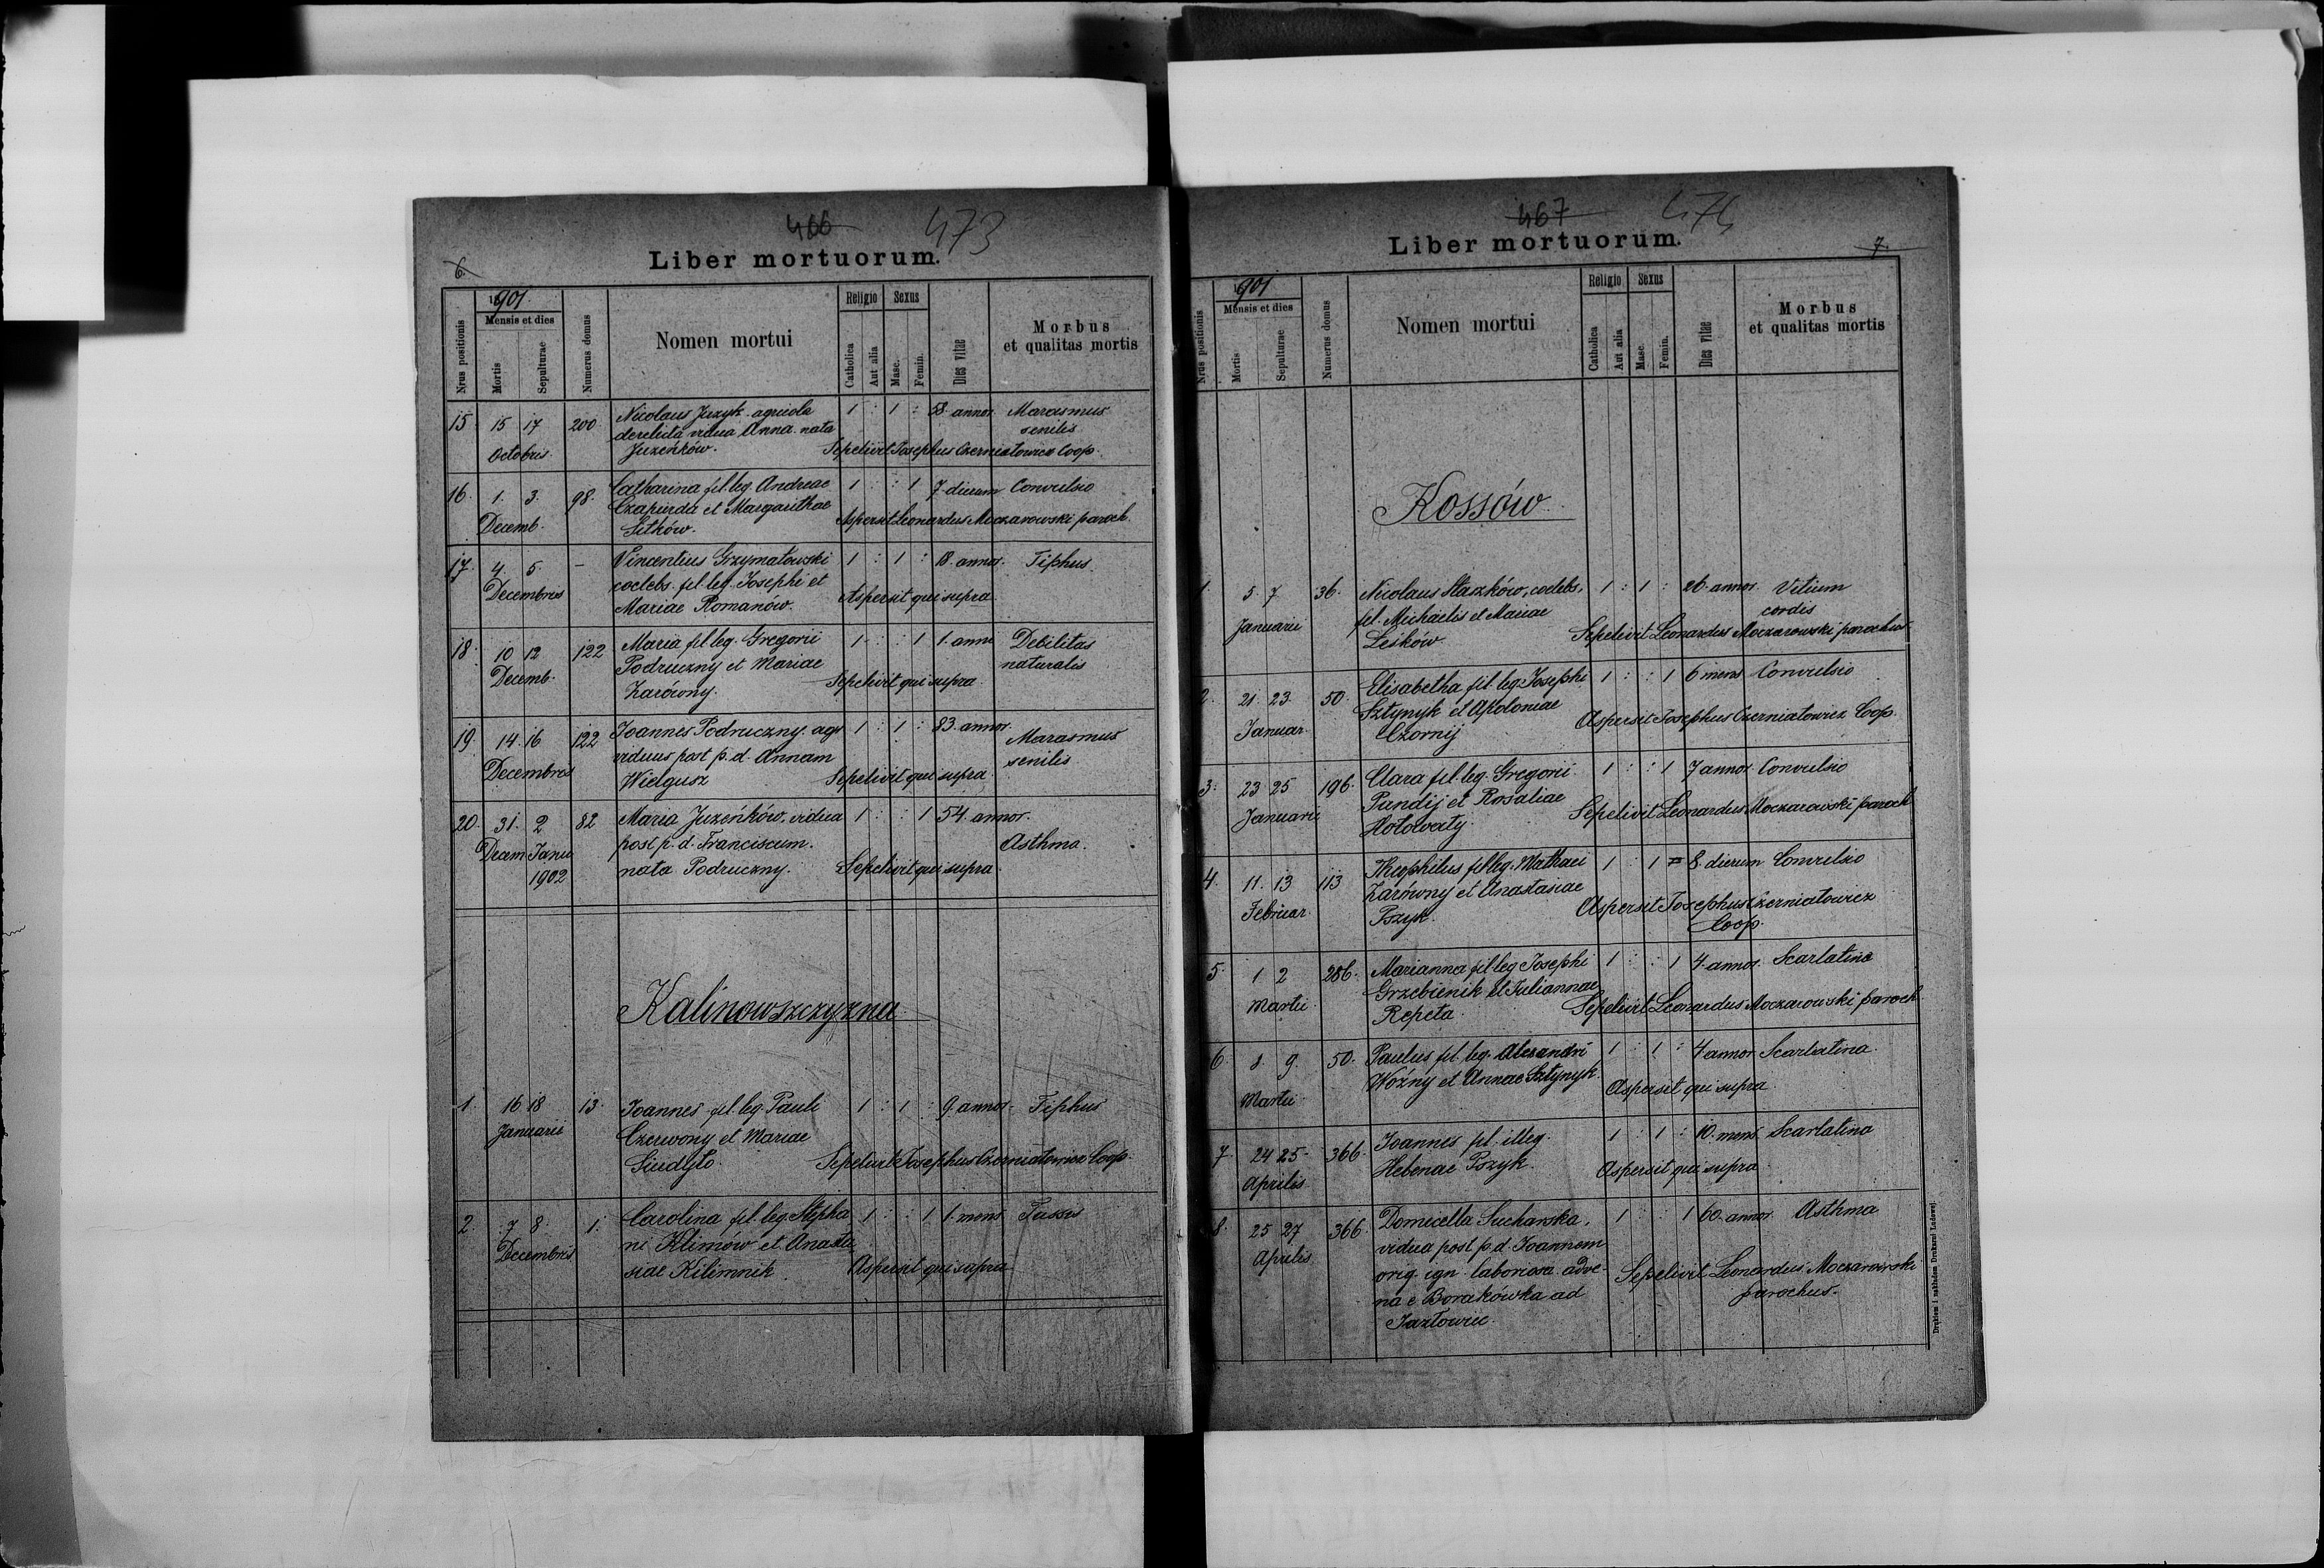 466 473
Liber mortuorum.
6.
Nrus positionis
1901
Mensis et dies
Mortis
Sepulturae
Numerus domus
Nomen mortui
Religio
Catholica
Aut alia
Sexus
Masc.
Femin.
Dies vitae
Morbus
et qualitas mortis
15 15 17 200 Nicolaus Juzyk agricola 1 : 1 : 58 annor. Marasmus
derelicta vidua Anna nata senilis
Octobris Juzeńków. Sepelivit Josephus Czerniatowicz Coop.
16. 1. 3. 98. Catharina fil. leg. Andreae 1 : : 1 7 dierum Convulsio
Czapurda et Margarithae
Decemb. Sitków. Aspersit Leonardus Moczarowski paroch.
17. 4. 5. - Vincentius Grzymałowski 1 : 1 : 18 annor. Tiphus.
Decembris coelebs fil. leg. Josephi et
Mariae Romanów. Aspersit qui supra
18. 10 12 122 Maria fil. leg. Gregorii 1 : : 1 1. anni Debilitas
Podruczny et Mariae naturalis
Decemb. Zarówny. Sepelivit qui supra.
19. 14. 16 122 Joannes Podruczny. agr 1 : 1 : 83. annor. Marasmus
viduus post p. d. Annam senilis
Decembris Wielgusz Sepelivit qui supra
20. 31. 2 82 Maria Juzeńków, vidua 1 : : 1 54. annor.
Decem. Janu post p. d. Franciscum. Asthma.
1902 nata Podruczny. Sepelivit qui supra.
Kalinowszczyzna
1. 16 18 13. Joannes fil. leg. Pauli 1 : 1 : 9. annor. Tiphus
Januarii Czerwony et Mariae
Siudyło. Sepelivit Josephus Czerniatowicz Coop.
2. 7 8 1. Carolina fil. leg. Stepha 1 : : 1 1. mens Tussis
Decembris ni Klimów et Anasta
siae Kilimnik. Aspersit qui supra
467 474
Liber mortuorum.
7.
Nrus positionis
1901
Mensis et dies
Mortis
Sepulturae
Numerus domus
Nomen mortui
Religio
Catholica
Aut alia
Sexus
Masc.
Femin.
Dies vitae
Morbus
et qualitas mortis
Kossów
1. 5. 7 36. Nicolaus Staszków, coelebs, 1 : 1 : 26. annor. Vitium
fil. Michaelis et Mariae cordis
Januarii Leśków. Sepelivit Leonardus Moczarowski parochus
2. 21. 23. 50. Elisabetha fil. leg. Josephi 1 : : 1 6 mens Convulsio
Sztynyk et Apoloniae
Januar. Czornij Aspersit Josephus Czerniatowicz Coop.
3. 23 25 196. Clara fil. leg. Gregorii 1 : : 1 7 annor. Convulsio
Pandij et Rosaliae
Januarii Hołowaty. Sepelivit Leonardus Moczarowski paroch
4. 11. 13 113 Theophilus fil. leg. Mathaei 1 : 1 8. dierum Convulsio
Zarówny et Anastasiae
Februar. Pszyk. Aspersit Josephus Czerniatowicz
Coop.
5. 1 2 286. Marianna fil. leg. Josephi 1 : : 1 4. annor. Scarlatina
Grzebienik et Juliannae
Martii Repeta. Sepelivit Leonardus Moczarowski paroch.
6. 8. 9. 50. Paulus fil. leg. Alexandri 1 : 1 : 4 annor. Scarlatina.
Woźny et Annae Sztynyk.
Martii Aspersit qui supra
7. 24 25 366. Joannes fil. illeg. 1 : 1 : 10. mens Scarlatina
Helenae Pszyk.
Aprilis Aspersit qui supra.
8. 25 27 366. Domicella Sucharska, 1 : : 1 60. annor. Asthma
Aprilis vidua post p. d. Joannem
orig. ign. laboriosa adve-
na e Borakówka ad Sepelivit Leonardus Moczarowski
Jazłowiec. parochus.
Drukiem i nakładem Drukarni Ludowej